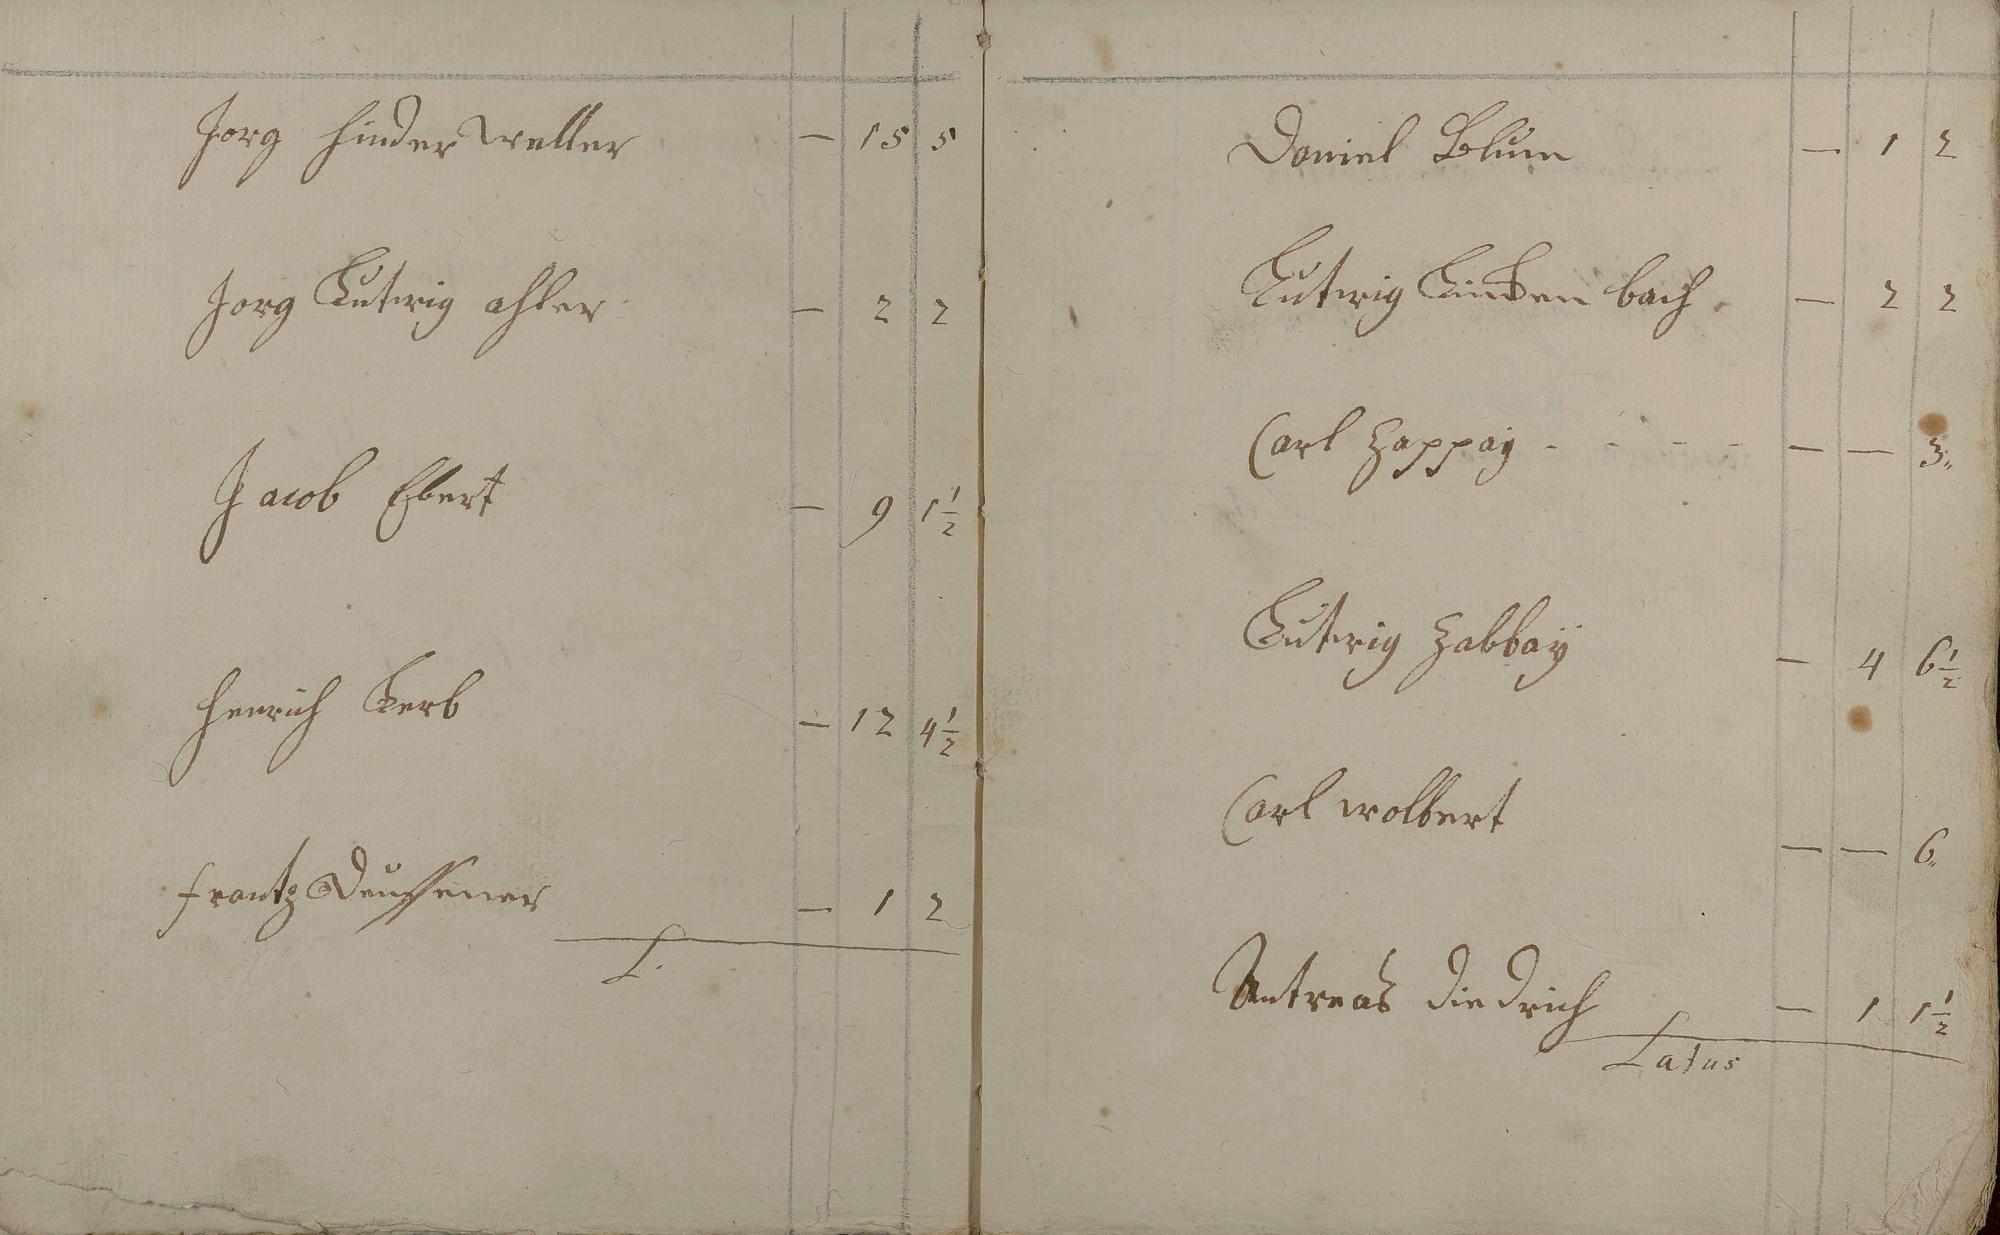 Jorg Hinder Weller — 15 5
Jorg Lutwig ahler — 2 2
Jacob Ebert — 9 1½
Henrich Kerb — 12 4½
Frantz — 1 2
L.
Daniel Blum — 1 2
Lutwig Lincken bach — 2 2
Carl Zappay - - - - — — 3"
Lutwig Zabbaÿ — 4 6½
Carl wolbert — — 6"
Antreas Diedrich — 1 1½
Latus